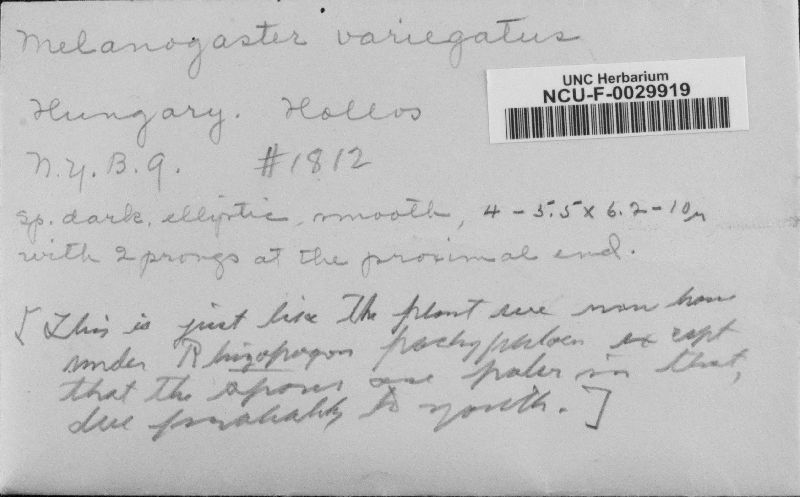 Melanogaster variegatus
UNC Herbarium
NCU-F-0029919
Hungary. Hollos
N.Y.B.G. #1812
sp. dark, elliptic, smooth, 4-5.5 x 6.2-10μ
with 2 prongs at the proximal end.
[This is just like the plant we now have
under Rhizopogon pachyphloes except
that the spores are paler in that,
due probably to youth.]